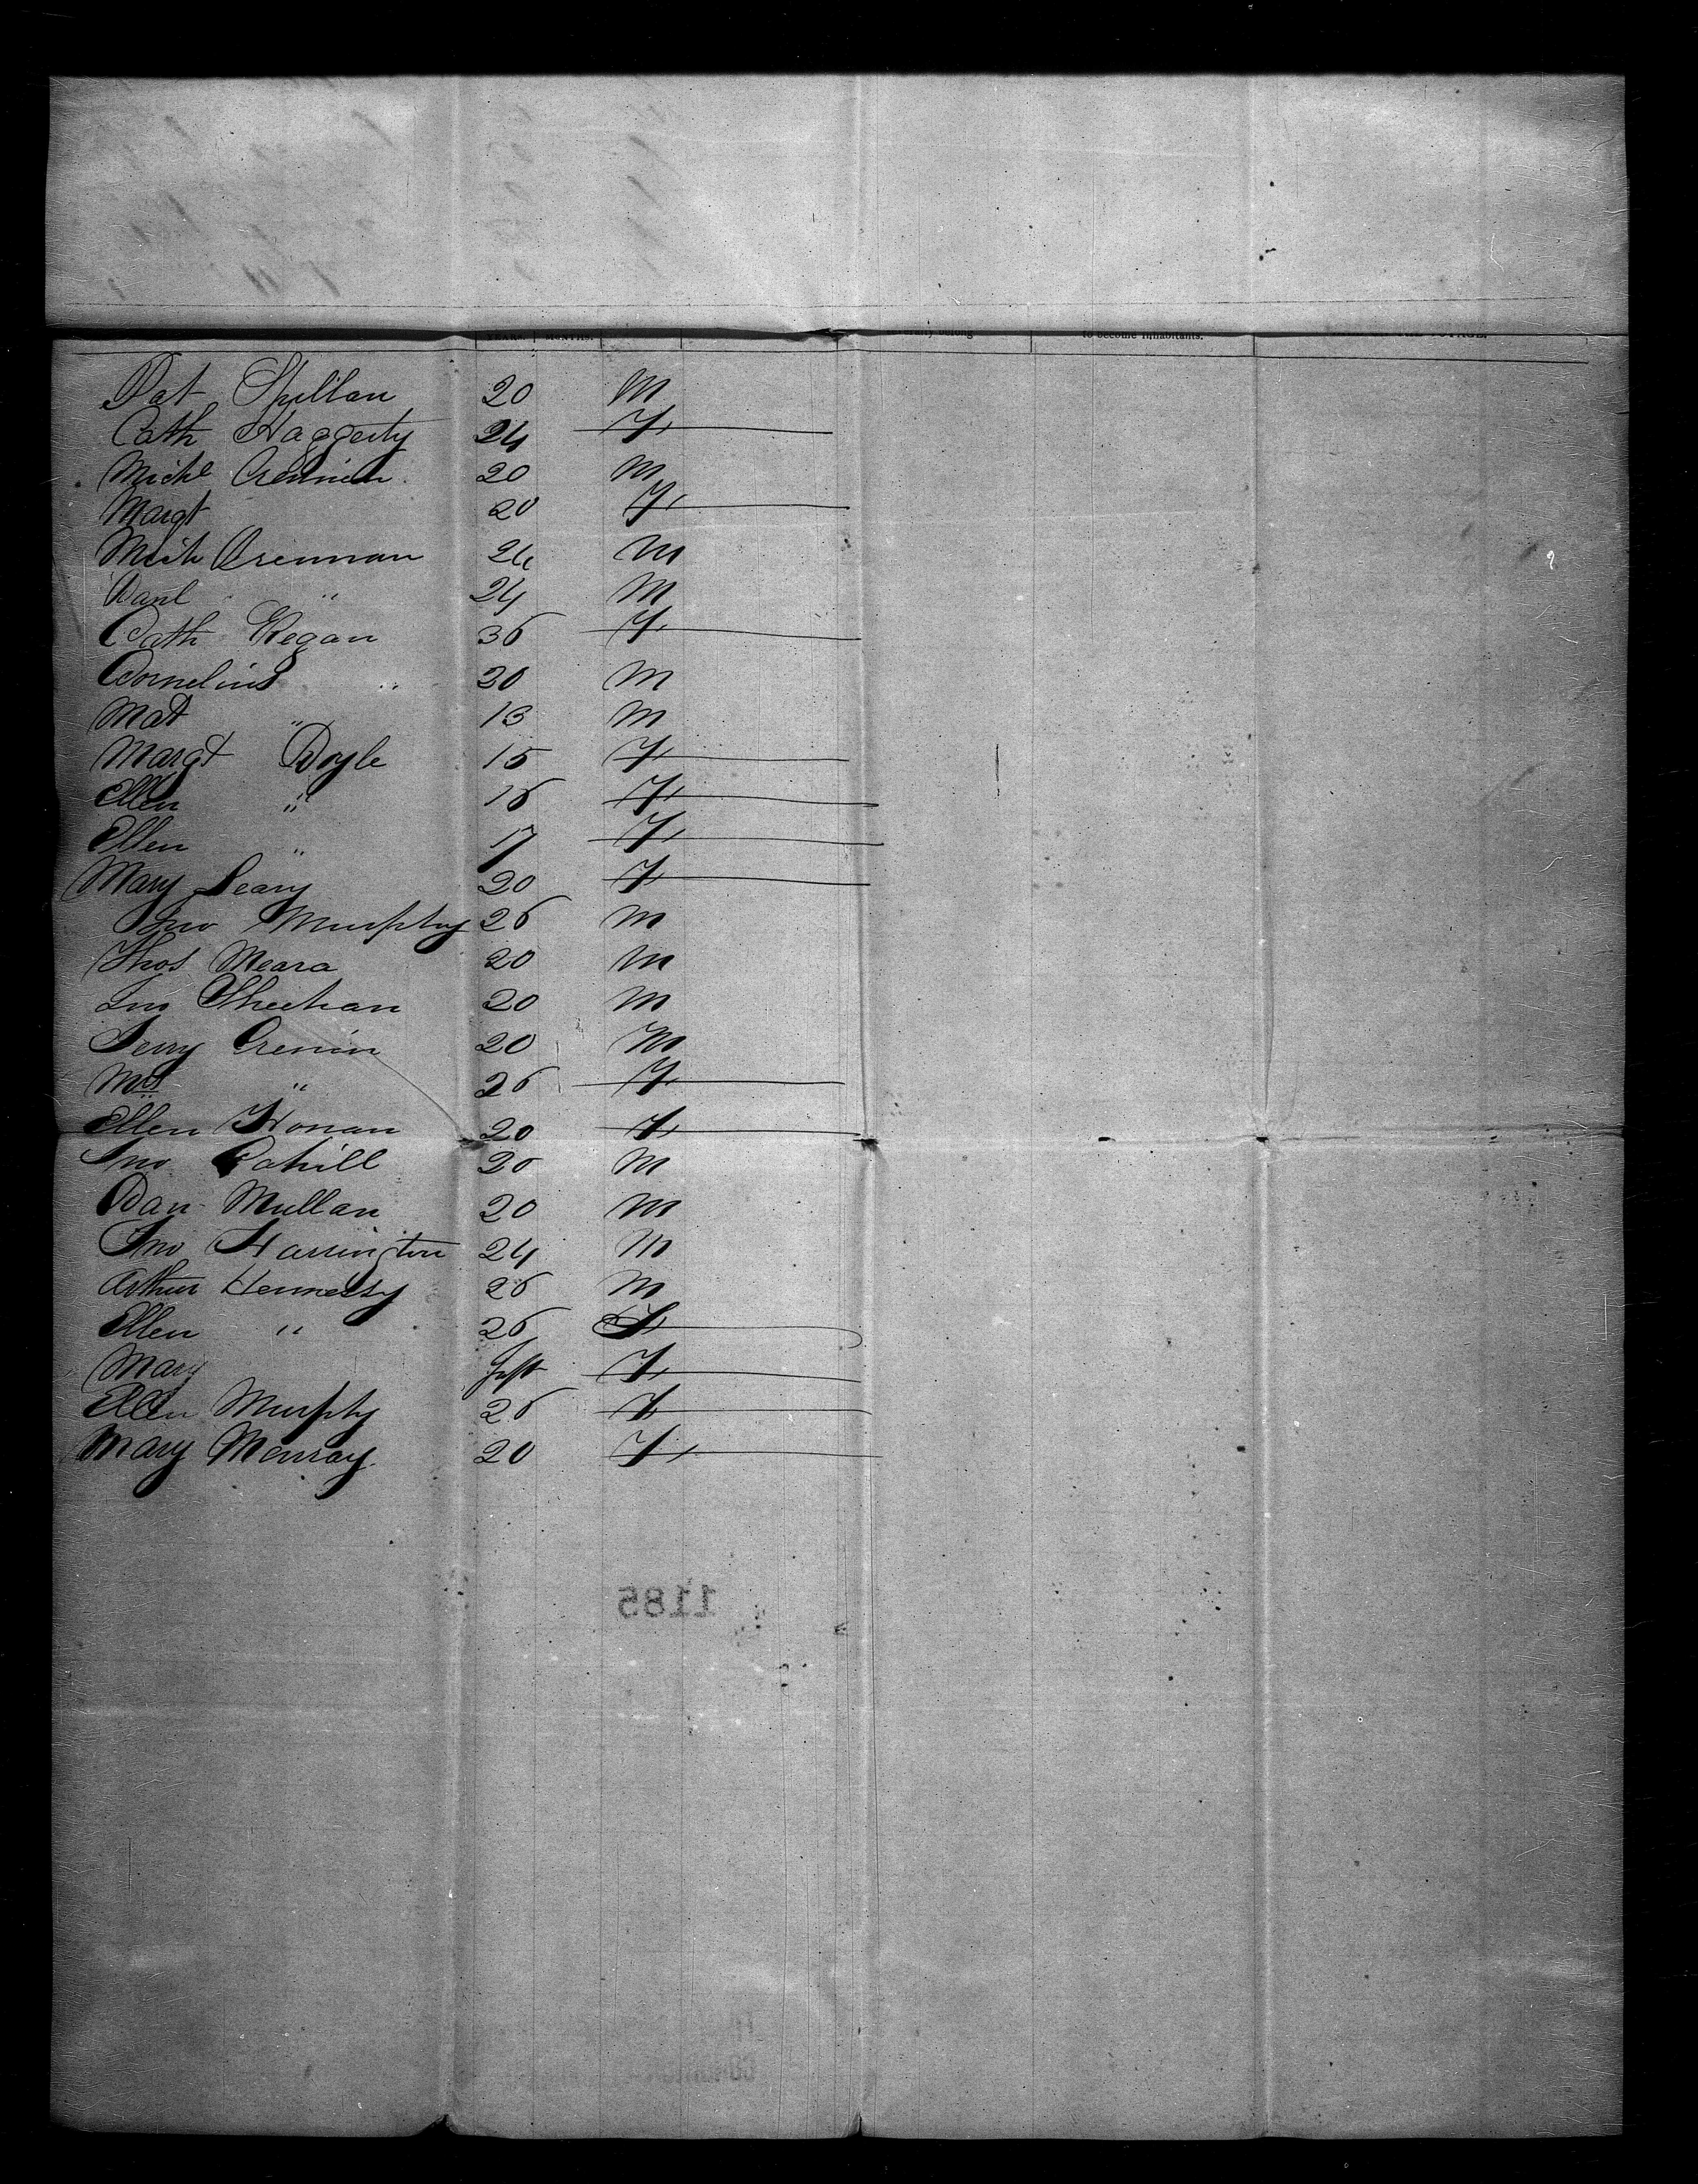 YEARS. MONTHS. belong to become inhabitants. VOYAGE.
Pat Spillan 20 M
Cath Haggerty 24 F
Michl Cremin 20 M
Margt 20 F
Mich Brennan 24 M
Danl " 24 M
Cath Regan 36 F
Cornelius " 20 M
Mat " 13 M
Margt Doyle 15 F
Ellen " 16 F
Ellen " 17 F
Mary Leary 20 F
Jno Murphy 26 M
Thos Meara 20 M
Jno Sheehan 20 M
Jerry Cremin 20 M
Mrs " 26 F
Ellen Honan 20 F
Jno Cahill 20 M
Dan Mullan 20 M
Jno Harrington 24 M
Arthur Hennessy 26 M
Ellen " 26 F
Mary Inft F
Ellen Murphy 26 F
Mary Murray 20 F
1185